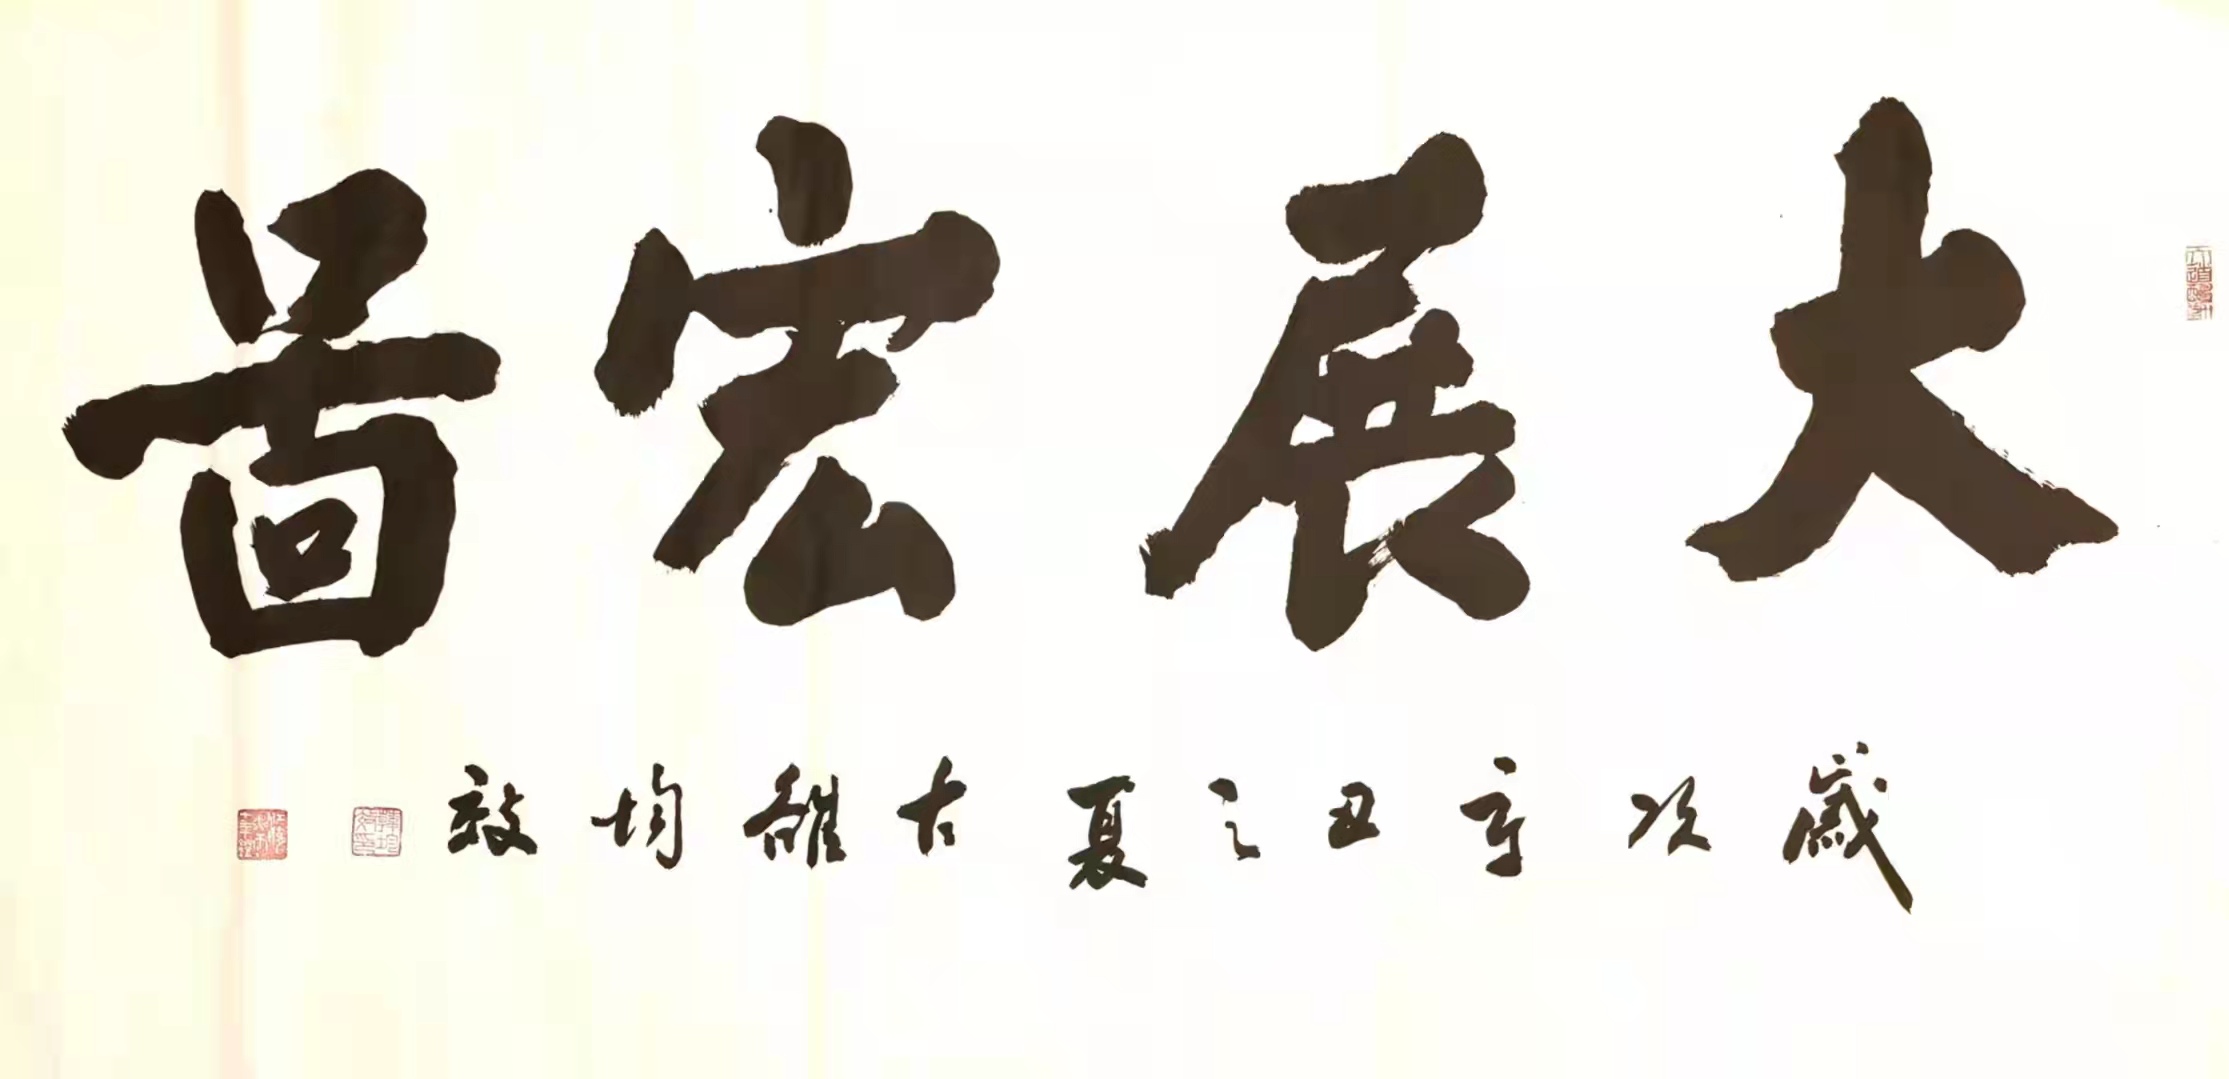 大展宏啚
歲次辛丑之夏古雒均